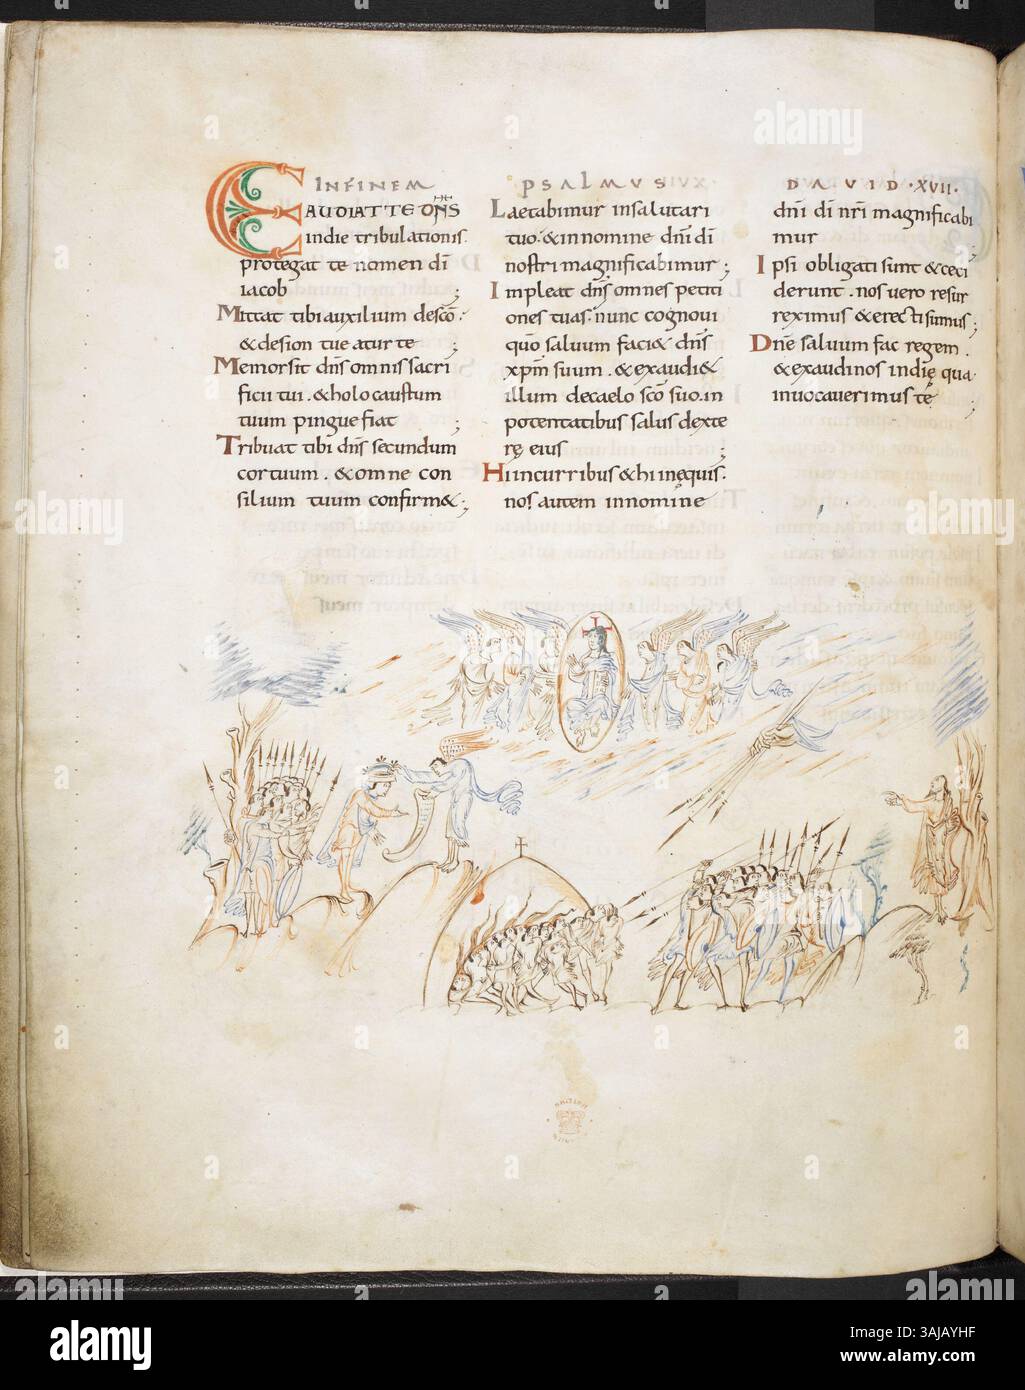 INFINEM PSALMUS DAVID·XVII·
EXAUDIAT TE DN̄S
indie tribulationis.
protegat te nomen dī
iacob ;
Mittat tibi auxilium descō·
& desion tueatur te ;
Memor sit dn̄s omnis sacri
ficii tui . & holocaustum
tuum pingue fiat ;
Tribuat tibi dn̄s secundum
cor tuum . & omne con
silium tuum confirm& ;
Laetabimur insalutari
tuo· & innomine dn̄i dī
nostri magnificabimur ;
Impleat dn̄s omnes petiti
ones tuas· nunc cognoui
quō saluum faci& dn̄s
xp̄m suum . & exaudi&
illum decaelo scō suo· in
potentatibus salus dexte
rę eius
Hi incurribus & hi inęquis·
nos autem innomine
dn̄i dī nr̄i magnificabi
mur ;
Ipsi obligati sunt & ceci
derunt . nos uero resur
reximus & erecti sumus ;
Dn̄e saluum fac regem .
& exaudi nos in dię qua
inuocauerimus tē ;
alamy
a
alamy
Image ID: 3AJAYHF
www.alamy.com